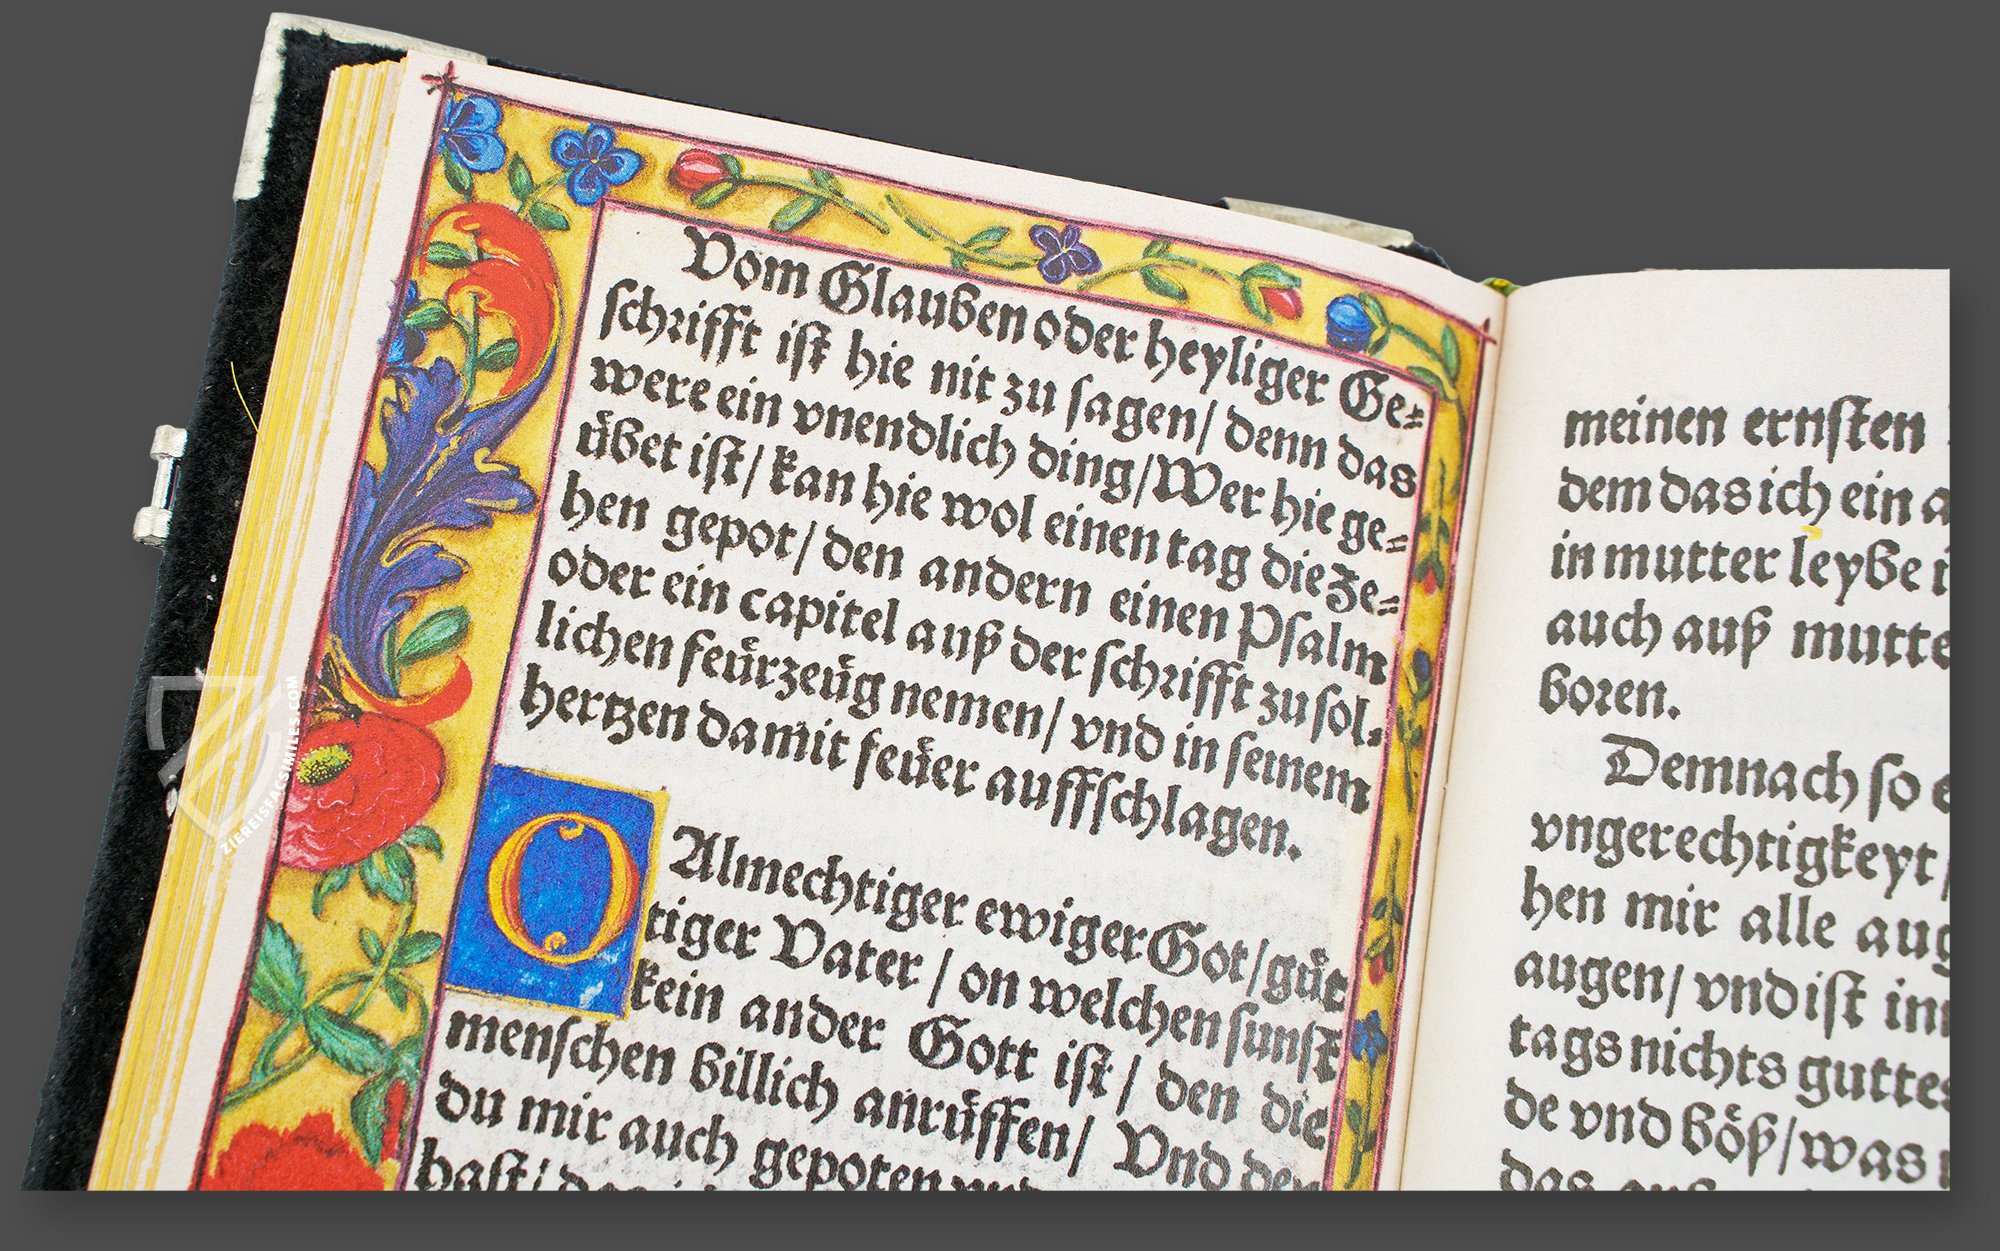 Vom Glauben oder heyliger Ge⸗
schrifft ist hie nit zu sagen/ denn das
were ein vnendlich ding/Wer hie ge⸗
uͤbet ist/ kan hie wol einen tag die Ze⸗
hen gepot/ den andern einen Psalm
oder ein capitel auß der schrifft zu sol⸗
lichen feuͤrzeuͤg nemen/ vnd in seinem
hertzen damit feuͤer auffschlagen.
O Almechtiger ewiger Got/ guͤt
tiger Vater / on welchen sunst
kein ander Gott ist/ den die
menschen billich anruͤffen/ Vnd den
du mir auch gepoten
hast/
meinen ernsten
dem das ich ein
in mutter leybe
auch auß mutte
boren.
Demnach so
vngerechtigkeyt/
hen mir alle aug
augen/ vnd ist
tags nichts guttes
de vnd boͤß/ was
das
ZIEREISFACSIMILES.COM